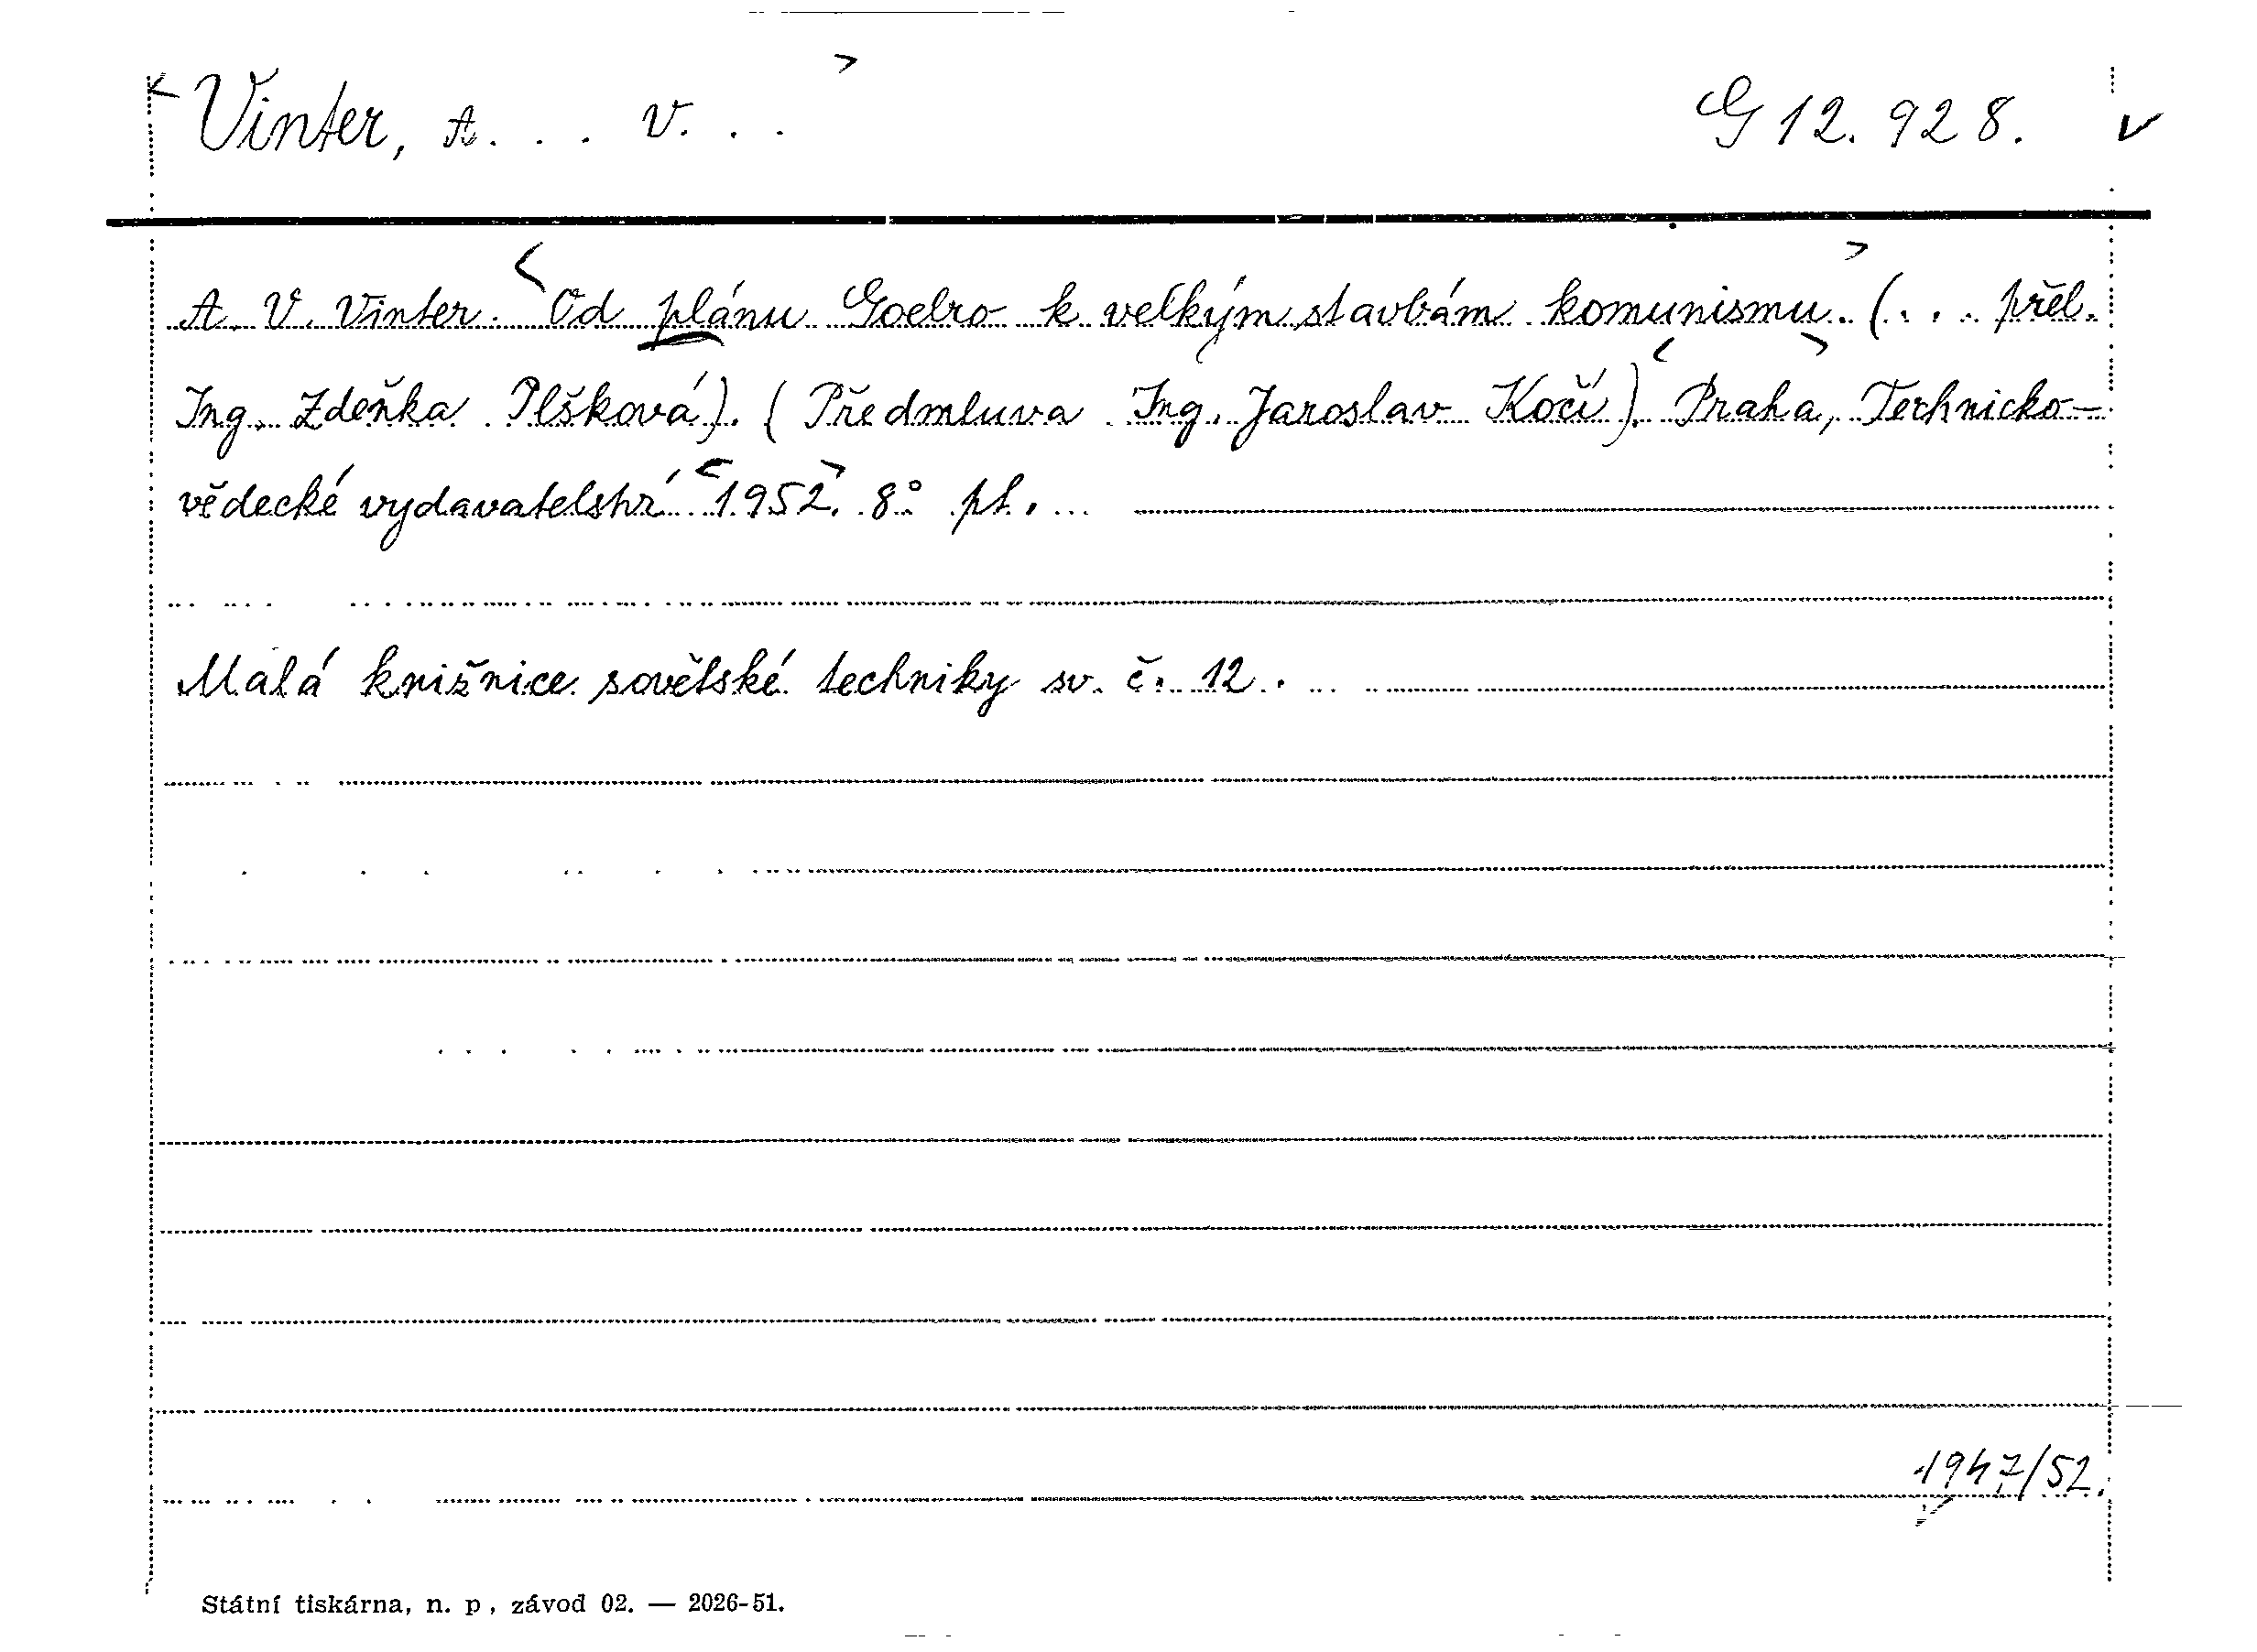 Vinter, A. . . V. . . G 12.928. v
A. V. Vinter. Od plánu Goelro k velkým stavbám komunismu. (... přel.
Ing. Zdeňka Plšková). (Předmluva Ing. Jaroslav Kočí). Praha, Technicko-
vědecké vydavatelství 1952. 8° pt.
Malá knižnice sovětské techniky sv. č. 12.
1947/52.
Státní tiskárna, n. p., závod 02. — 2026-51.